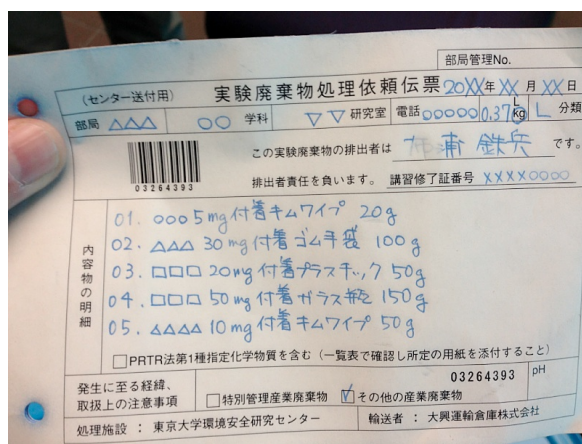 部局管理No.
(センター送付用) 実験廃棄物処理依頼伝票 20XX年 XX 月 XX 日
部局 △△△ ○○ 学科 ▽▽ 研究室 電話 ○○○○○ 0.37 L kg L 分類
この実験廃棄物の排出者は 浦 鉄兵 です。
03264393
排出者責任を負います。 講習修了証番号 XXXX0000
内容物の明細
01. ○○○ 5mg 付着キムワイプ 20g
02. △△△ 30mg 付着ゴム手袋 100g
03. □□□ 20mg 付着プラスチック 50g
04. □□□ 50mg 付着ガラス瓶 150g
05. △△△△ 10mg 付着キムワイプ 50g
□PRTR法第1種指定化学物質を含む (一覧表で確認し所定の用紙を添付すること)
発生に至る経緯、
取扱上の注意事項
03264393 pH
□特別管理産業廃棄物 ☑その他の産業廃棄物
処理施設 : 東京大学環境安全研究センター 輸送者 : 大興運輸倉庫株式会社